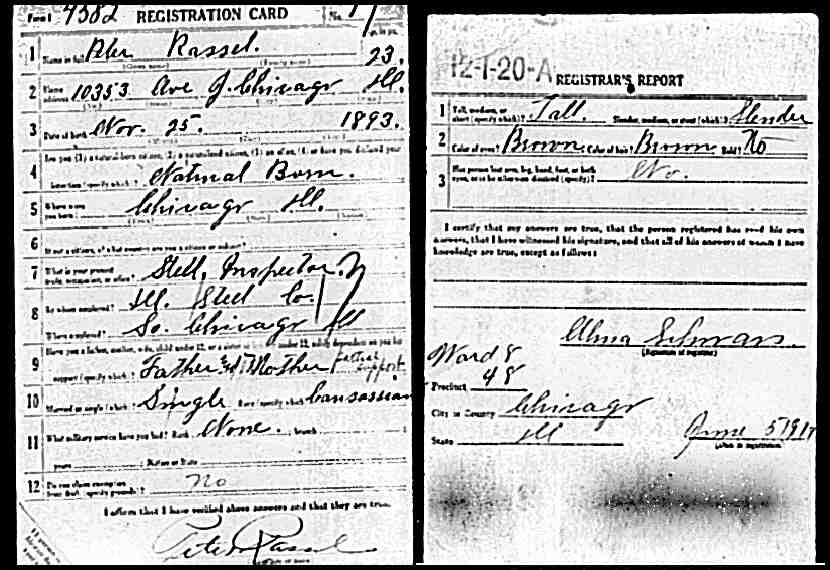 Form 1 4382 REGISTRATION CARD No.
1 Name in full Peter Rassel. 23.
(Given name) (Family name)
2 Home address 10353 Ave J. Chicago Ill.
3 Date of birth Nov. 25. 1893.
4 Are you (1) a natural-born citizen, (2) a naturalized citizen, (3) an alien, (4) or have you declared your
intention (specify which)? Natural Born.
5 Where were you born? Chicago Ill.
6 If not a citizen, of what country are you a citizen or subject?
7 What is your present trade, occupation, or office? Steel, Inspector.
8 By whom employed? Ill. Steel Co.
Where employed? So. Chicago Ill
9 Have you a father, mother, wife, child under 12, or a sister or under 12, solely dependent on you for
support (specify which)? Father & Mother partial support
10 Married or single (which)? Single Race (specify which)? Caucassian
11 What military service have you had? Rank None. ; branch
years ; Nation or State
12 Do you claim exemption from draft (specify grounds)? No
I affirm that I have verified above answers and that they are true.
Peter Rassel
12-1-20-A REGISTRAR'S REPORT
1 Tall, medium, or short (specify which)? Tall. Slender, medium, or stout (which)? Slender
2 Color of eyes? Brown. Color of hair? Brown. Bald? No
3 Has person lost arm, leg, hand, foot, or both eyes, or is he otherwise disabled (specify)? No.
I certify that my answers are true, that the person registered has read his own
answers, that I have witnessed his signature, and that all of his answers of which I have
knowledge are true, except as follows:
(Signature of registrar)
Ward 8
Precinct 48
City or County Chicago
State Ill June 5 1917
(Date of registration)